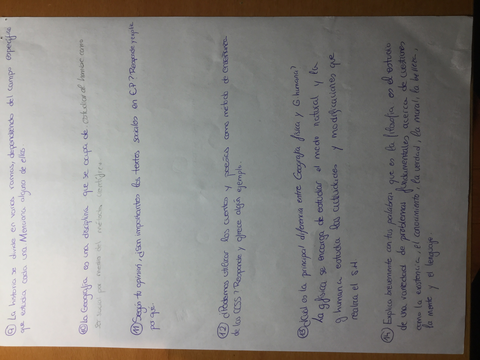 ⑨ La historia se divide en varias ramas, dependiendo del campo específico
que estudia cada una. Menciona alguna de ellas.
⑩ La Geografía es una disciplina que se ocupa de estudiar al hombre como
ser
por medio del
científico.
⑪ Según tu opinión, ¿Son importantes los textos sociales en E.P? Responde y explica
por qué.
⑫ ¿Podemos utilizar los cuentos y poesías como método de enseñanza
de las CCSS? Responde y ofrece algún ejemplo.
⑬ ¿Cuál es la principal diferencia entre Geografía física y G. humana?
La g. física se encarga de estudiar el medio natural y la
g. humana estudia las
y modificaciones que
realiza el S.H.
⑭ Explica brevemente con tus palabras qué es la filosofía es el estudio
de una variedad de problemas fundamentales acerca de cuestiones
como la existencia, el conocimiento, la verdad, la moral, la belleza,
la mente y el lenguaje.